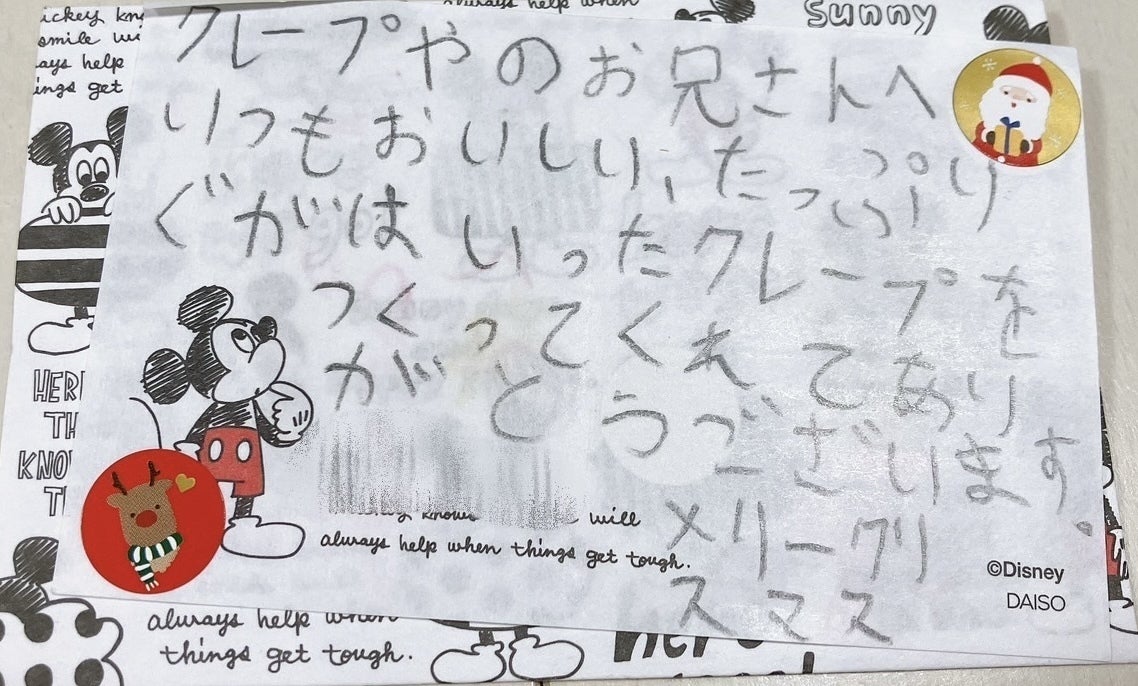 always help when
Sunny
smile
help
get
クレープやのお兄さんへ
いつもおいしい、たっぷり
ぐがはいったクレープを
つくってくれてあり
がとうございます。
メリークリ
スマス
knows will
always help when things get tough.
©Disney
DAISO
always help when
things get tough.